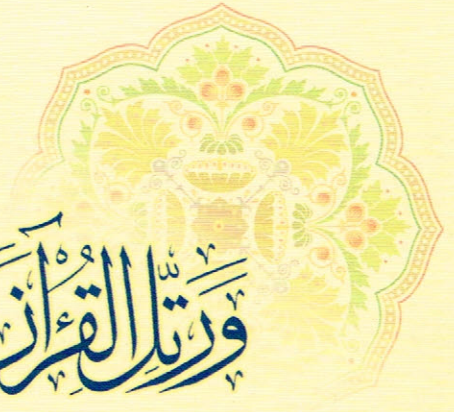 وَرَتِّلِ الْقُرْآنَ